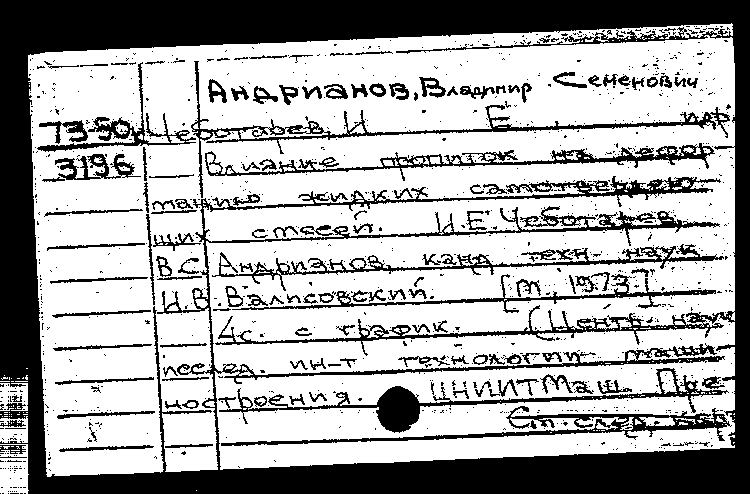 Андрианов, Владимир Семенович
73-50 Чеботарев, И Е. идр
3196 Влияние пропиток на дефор
мацию жидких самотвердею
щих смесей. И.Е. Чеботарев,
В.С. Андрианов, канд техн. наук
И.В. Валисовский. [М., 1973].
4с. с график. (Центр. науч
исслед. ин-т технологии маши
ностроения. ЦНИИТМаш. Пре
См. след. кар